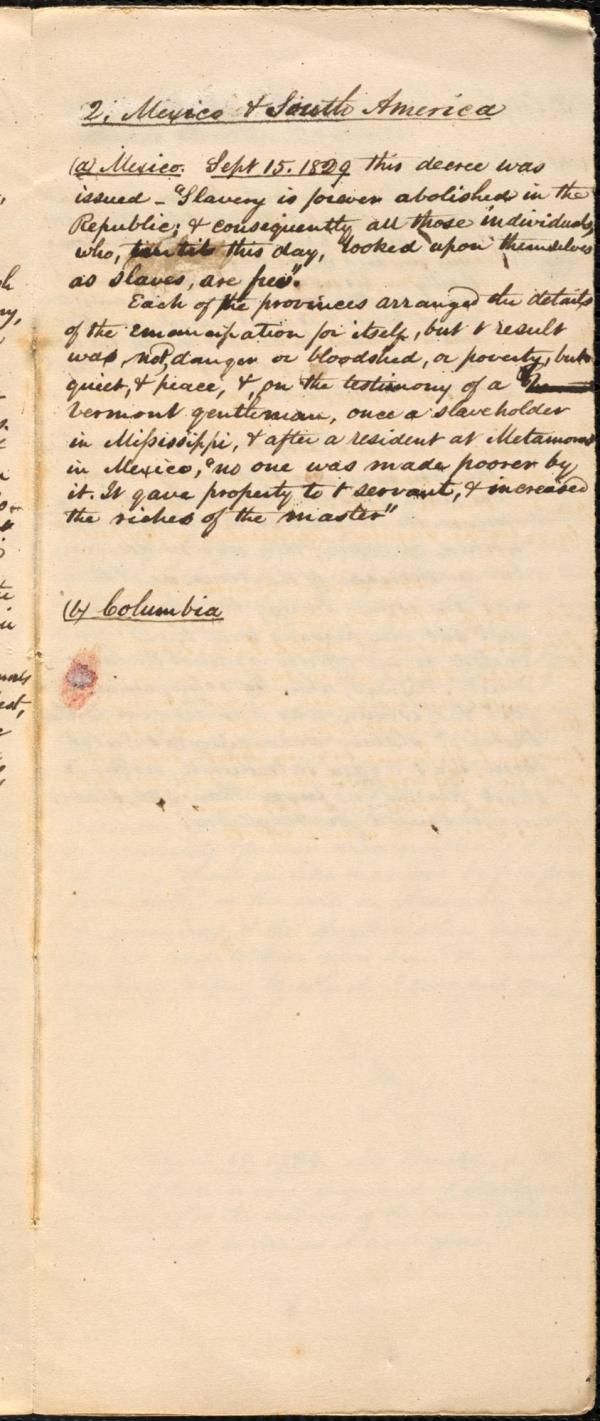 2. Mexico & South America
(a) Mexico. Sept 15. 1829 this decree was
issued - "Slavery is forever abolished in the
Republic; & consequently all those individuals
who, until this day, looked upon themselves
as slaves, are free".
Each of the provinces arranged the details
of the emancipation for itself, but t result
was, not, danger or bloodshed, or poverty, but
quiet, & peace, &, on the testimony of a
Vermont gentleman, once a slaveholder
in Mississippi, & after a resident at Metamoras
in Mexico, "no one was made poorer by
it. It gave property to t servant, & increased
the riches of the master"
(b) Columbia